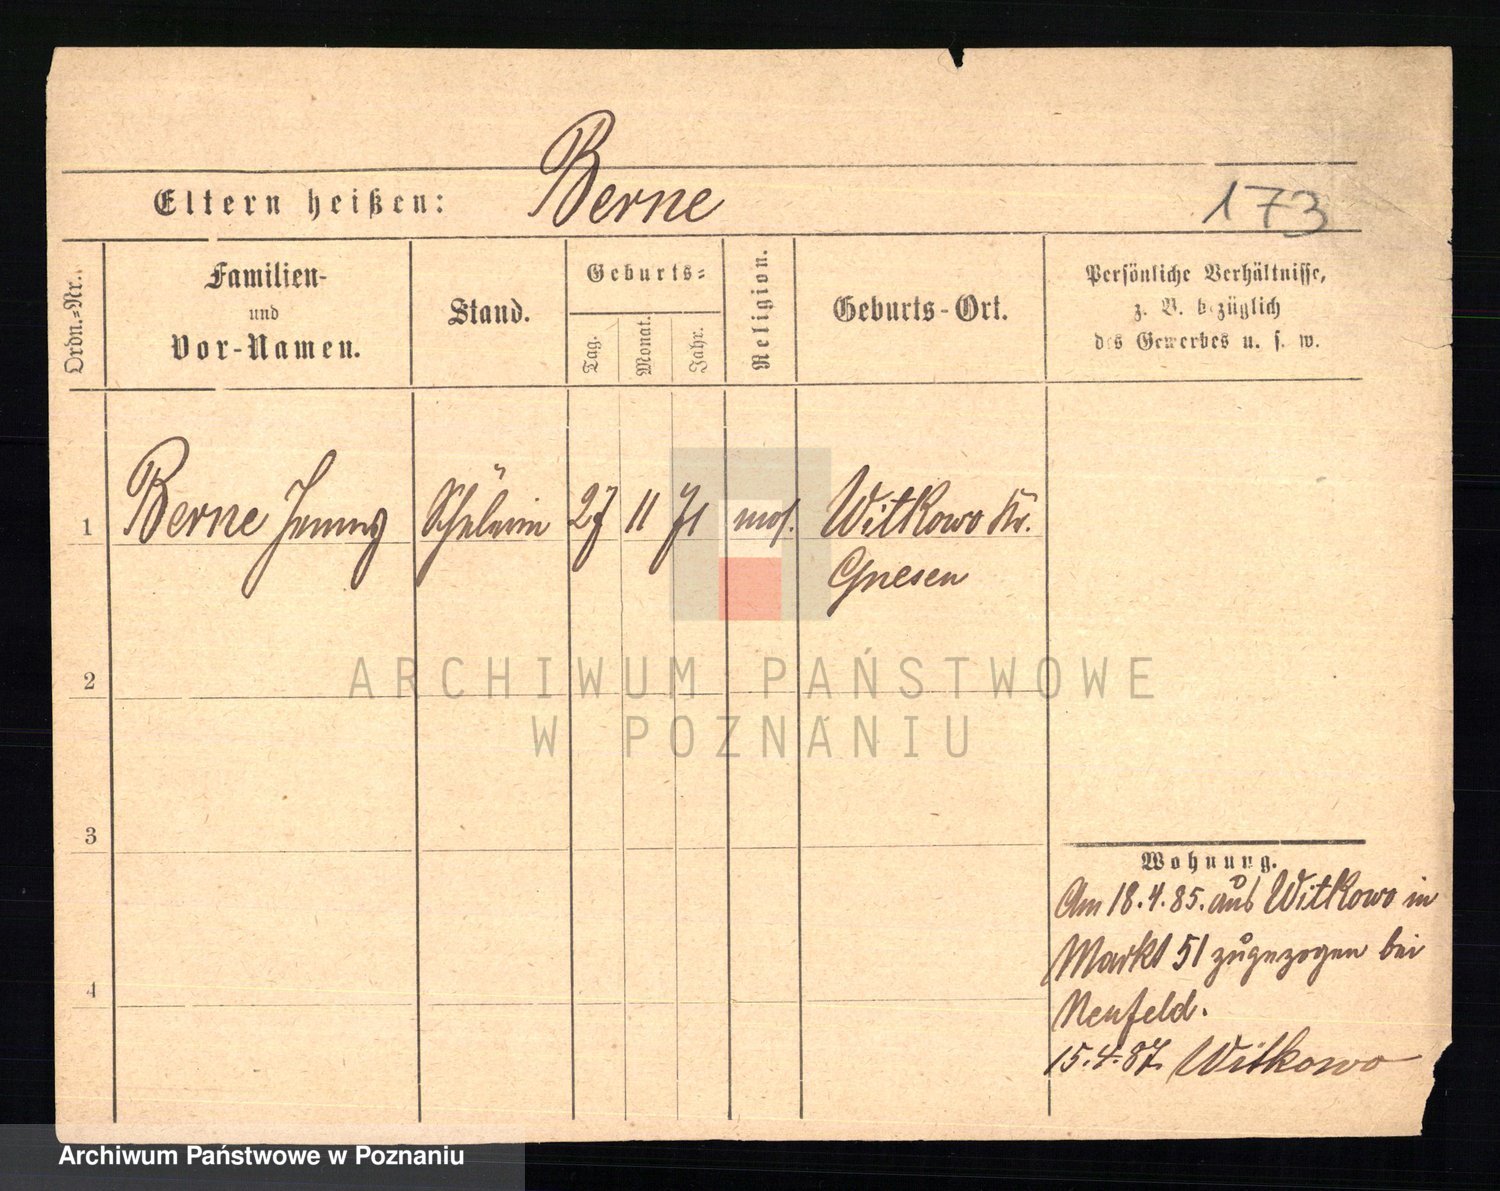 Eltern heißen: Berne
173
Ordn.-Nr.
Familien-
und
Vor-Namen.
Stand.
Geburts-
Tag.
Monat.
Jahr.
Religion.
Geburts-Ort.
Persönliche Verhältnisse,
z. B. bezüglich
des Gewerbes u. s. w.
1 Berne Jenny Schülerin 27 11 71 mos. Witkowo Kr.
Gnesen
2
ARCHIWUM PAŃSTWOWE
W POZNANIU
3
Wohnung.
Am 18.4.85. aus Witkowo in
Markt 51 zugezogen bei
4
Neufeld.
15.4.87. Witkowo
Archiwum Państwowe w Poznaniu